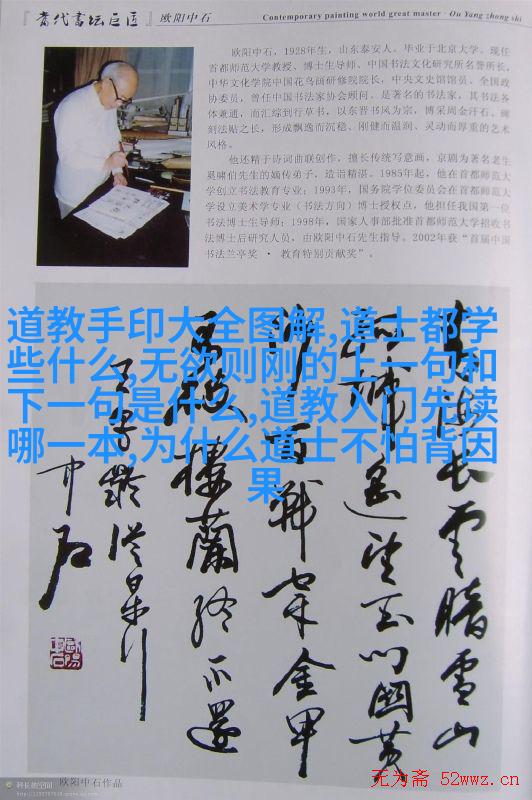 『當代书坛巨匠』 欧阳中石 Contemporary painting world great master · Ou Yang zhong shi
欧阳中石，1928年生，山东泰安人。毕业于北京大学。现任
首都师范大学教授、博士生导师、中国书法文化研究所名誉所长，
中华文化学院中国花鸟画研修院院长，中央文史馆馆员、全国政
协委员，曾任中国书法家协会顾问。是著名的书法家，其书法各
体兼通，而汇综到行草书，以东晋书风为宗，博采周金汗石、碑
刻法贴之长，形成飘逸而沉稳、刚健而温润、灵动而厚重的艺术
风格。
他还精于诗词曲联创作，擅长传统写意画，京剧为著名老生
奚啸伯先生的嫡传弟子，造诣精湛。1985年起，他在首都师范大
学创立书法教育专业；1993年，国务院学位委员会在首都师范大
学设立美术学专业（书法方向）博士授权点，他担任我国第一位
书法博士生导师；1998年，国家人事部批准首都师范大学招收书
法博士后研究人员，由欧阳中石先生指导。2002年获“首届中国
书法兰亭奖 · 教育特别贡献奖”。
道教手印大全图解,道士都学
些什么,无欲则刚的上一句和
下一句是什么,道教入门先读
哪一本,为什么道士不怕背因
果
青海长雲暗雪山
孤城遥望玉门關黄
沙百戰穿金甲
不破樓蘭终不還
王昌龄從軍行
中石
欧阳中石作品
无为斋 52wwz.cn